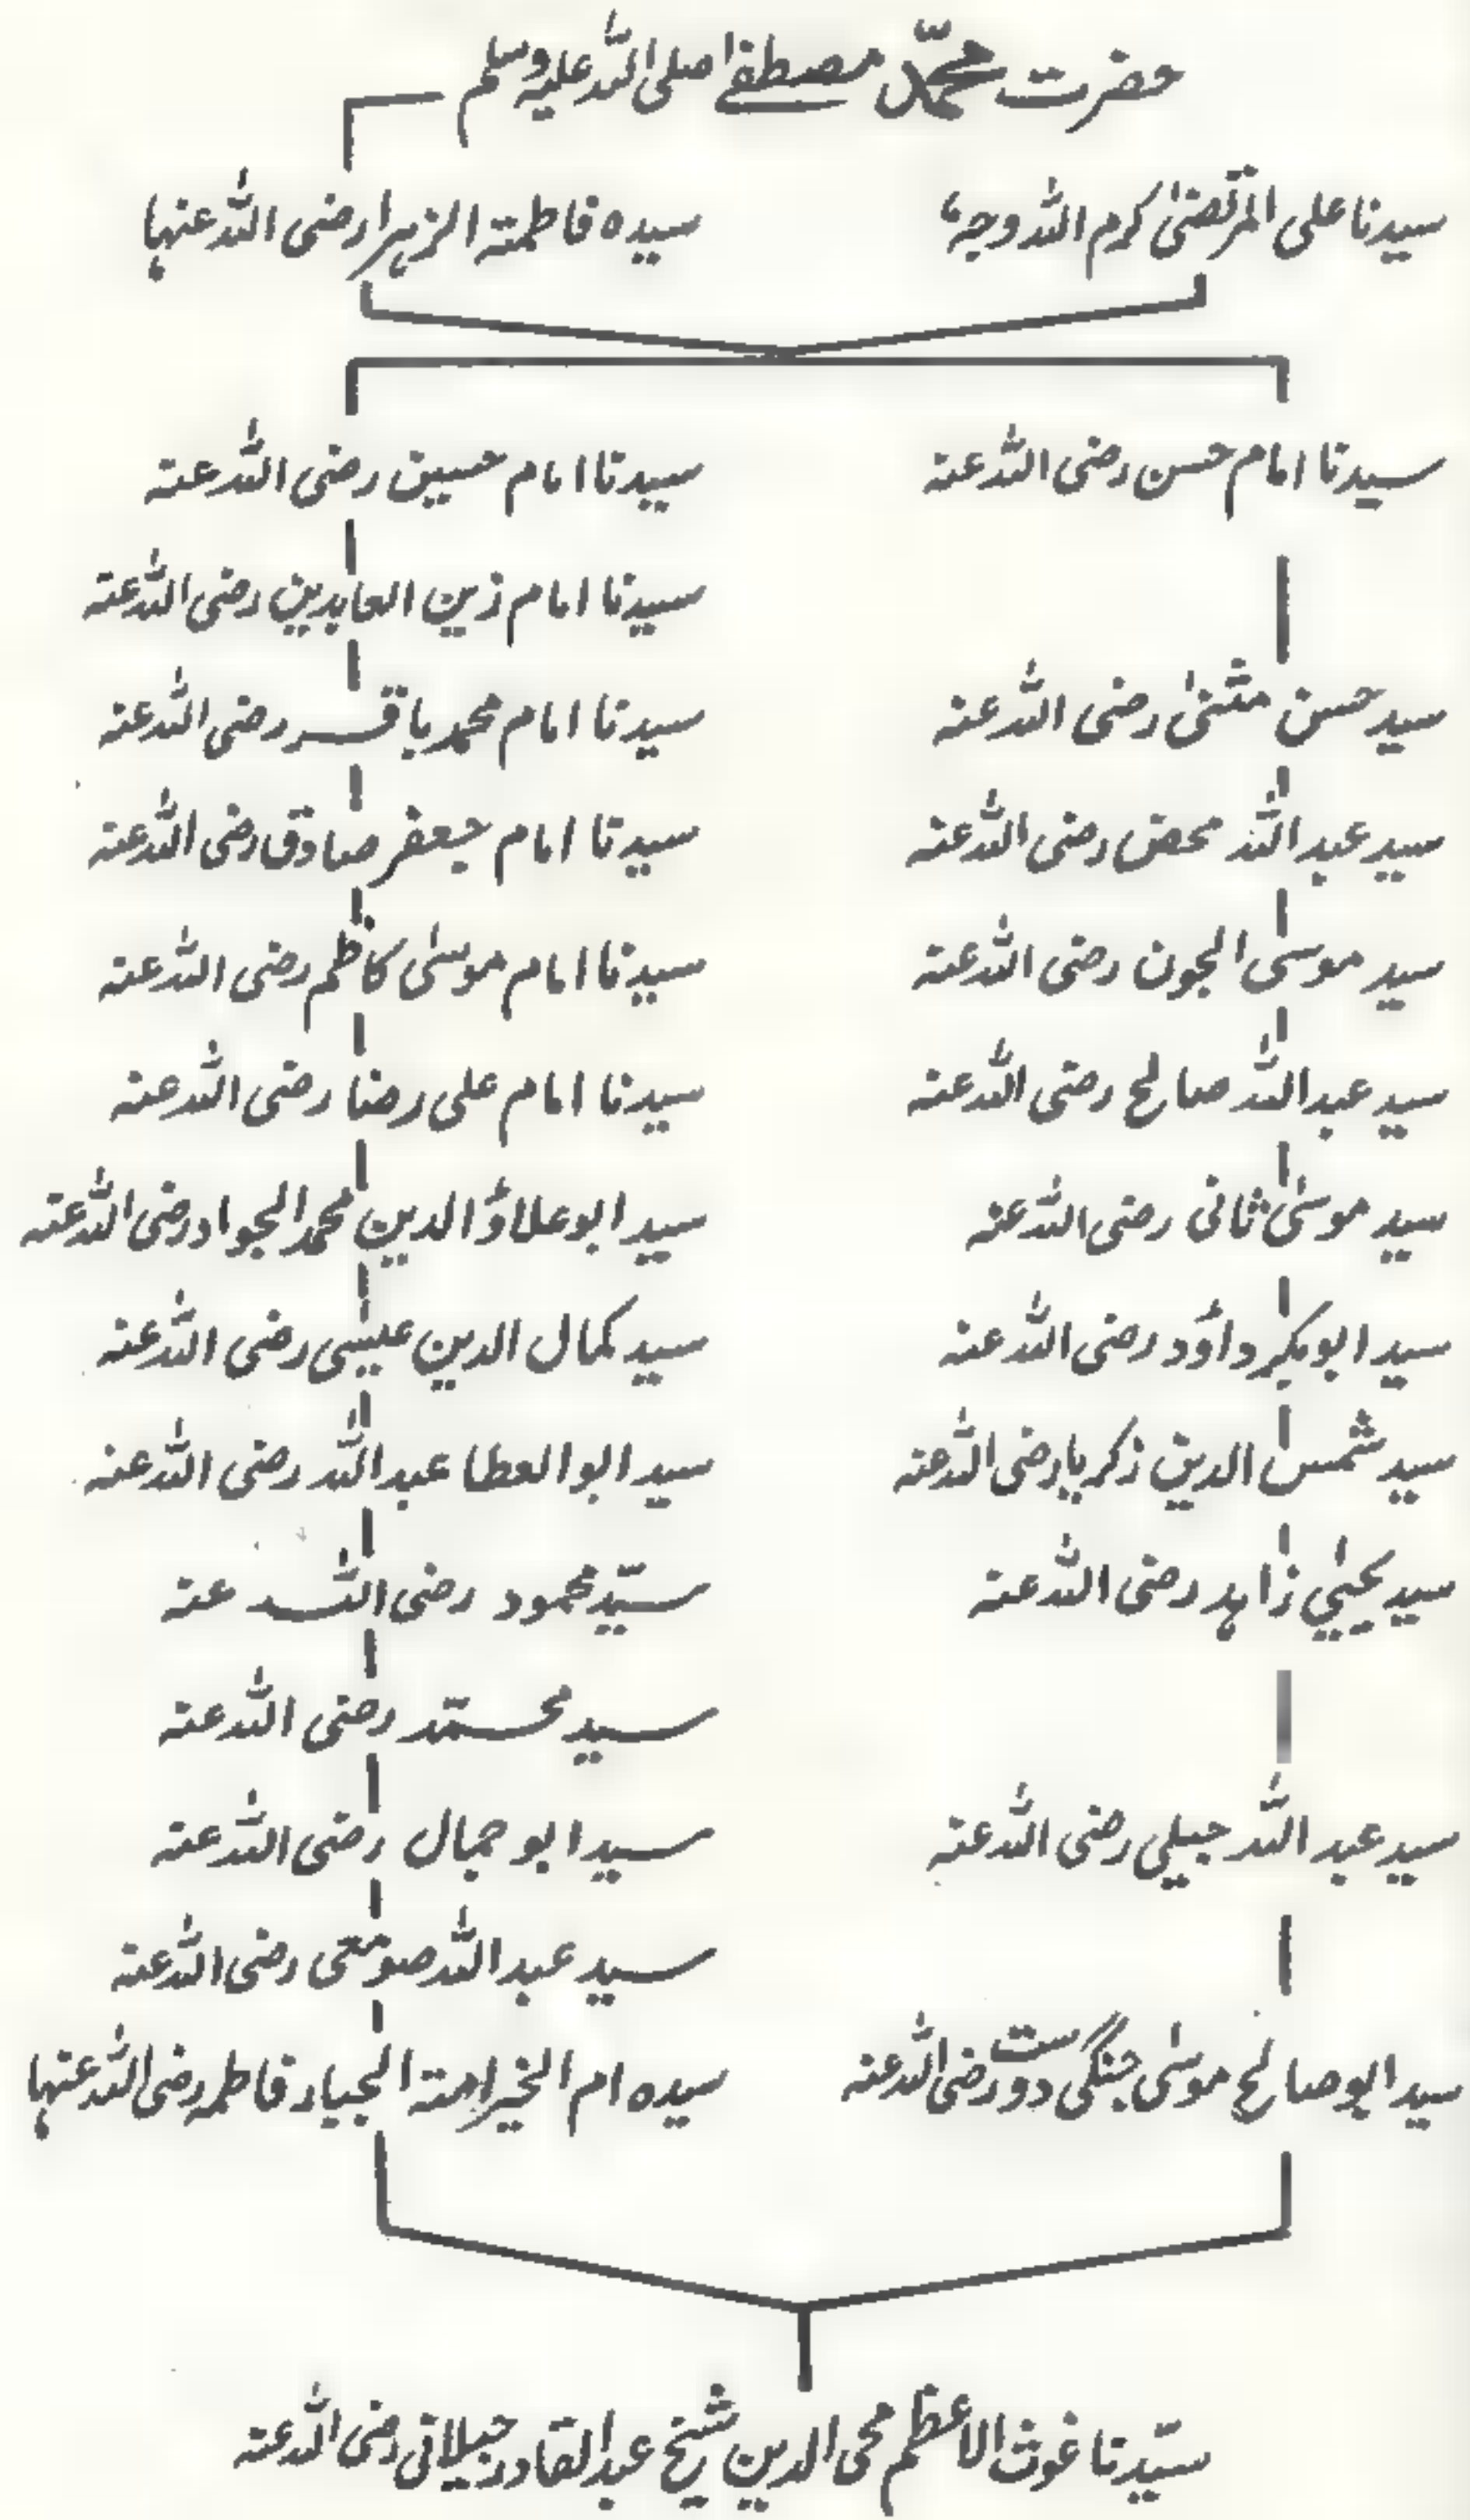 حضرت محمّد مصطفےٰ صلی اللہ علیہ وسلم
سیدنا علی المرتضیٰ کرم اللہ وجہہ
سیدہ فاطمۃ الزہرا رضی اللہ عنہا
سیدنا امام حسن رضی اللہ عنہ
سید حسن مثنیٰ رضی اللہ عنہ
سید عبد اللہ محض رضی اللہ عنہ
سید موسیٰ الجون رضی اللہ عنہ
سید عبداللہ صالح رضی اللہ عنہ
سید موسیٰ ثانی رضی اللہ عنہ
سید ابوبکر داؤد رضی اللہ عنہ
سید شمس الدین زکریا رضی اللہ عنہ
سید یحییٰ زاہد رضی اللہ عنہ
سید عبد اللہ جیلی رضی اللہ عنہ
سید ابو صالح موسیٰ جنگی دوست رضی اللہ عنہ
سیدنا امام حسین رضی اللہ عنہ
سیدنا امام زین العابدین رضی اللہ عنہ
سیدنا امام محمد باقر رضی اللہ عنہ
سیدنا امام جعفر صادق رضی اللہ عنہ
سیدنا امام موسیٰ کاظم رضی اللہ عنہ
سیدنا امام علی رضا رضی اللہ عنہ
سید ابو علاؤ الدین محمد الجواد رضی اللہ عنہ
سید کمال الدین عیسٰی رضی اللہ عنہ
سید ابو العطا عبداللہ رضی اللہ عنہ
سیّد محمود رضی اللہ عنہ
سید محمّد رضی اللہ عنہ
سید ابو جمال رضی اللہ عنہ
سید عبد اللہ صومعی رضی اللہ عنہ
سیدہ ام الخیر امۃ الجبار فاطمہ رضی اللہ عنہا
سیّدنا غوث الاعظم محی الدین شیخ عبدالقادر جیلانی رضی اللہ عنہ